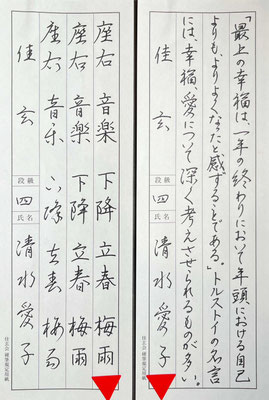 「最上の幸福は、一年の終わりにおいて年頭における自己
よりも、よりよくなったと感ずることである。」トルストイの名言
には、幸福、愛について深く考えさせられるものが多い。
佳玄 段級 四 氏名 清水愛子
佳玄会 硬筆規定用紙
座右 音楽 下降 立春 梅雨
座右 音楽 下降 立春 梅雨
座右 音楽 下降 立春 梅雨
佳玄 段級 四 氏名 清水愛子
佳玄会 硬筆規定用紙